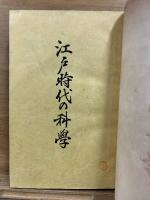 江戸時代の科學